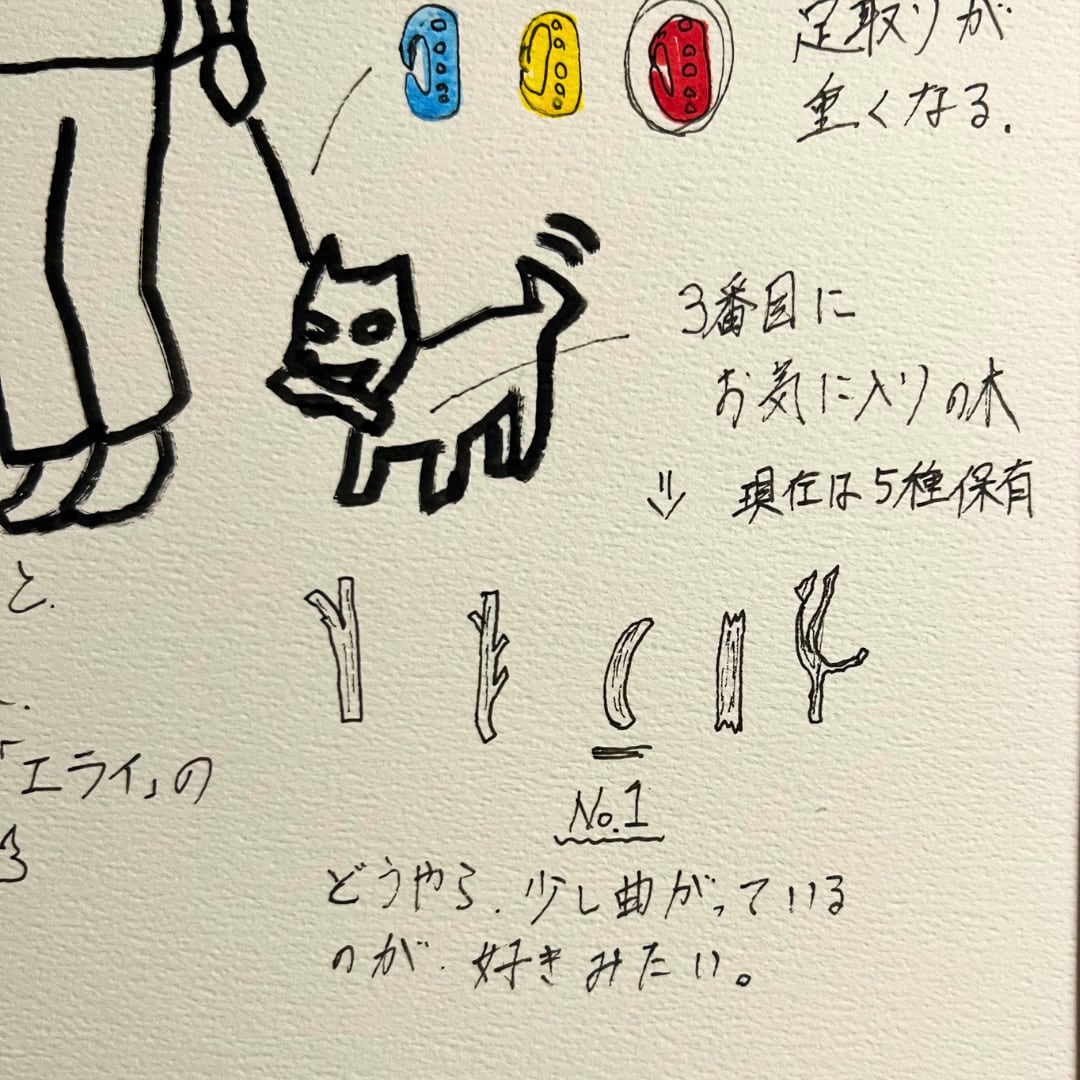 足取りが
重くなる.
3番目に
お気に入りの木
⇓ 現在は5種保有
と.
「エライ」の
No.1
どうやら.少し曲がっている
のが.好きみたい。